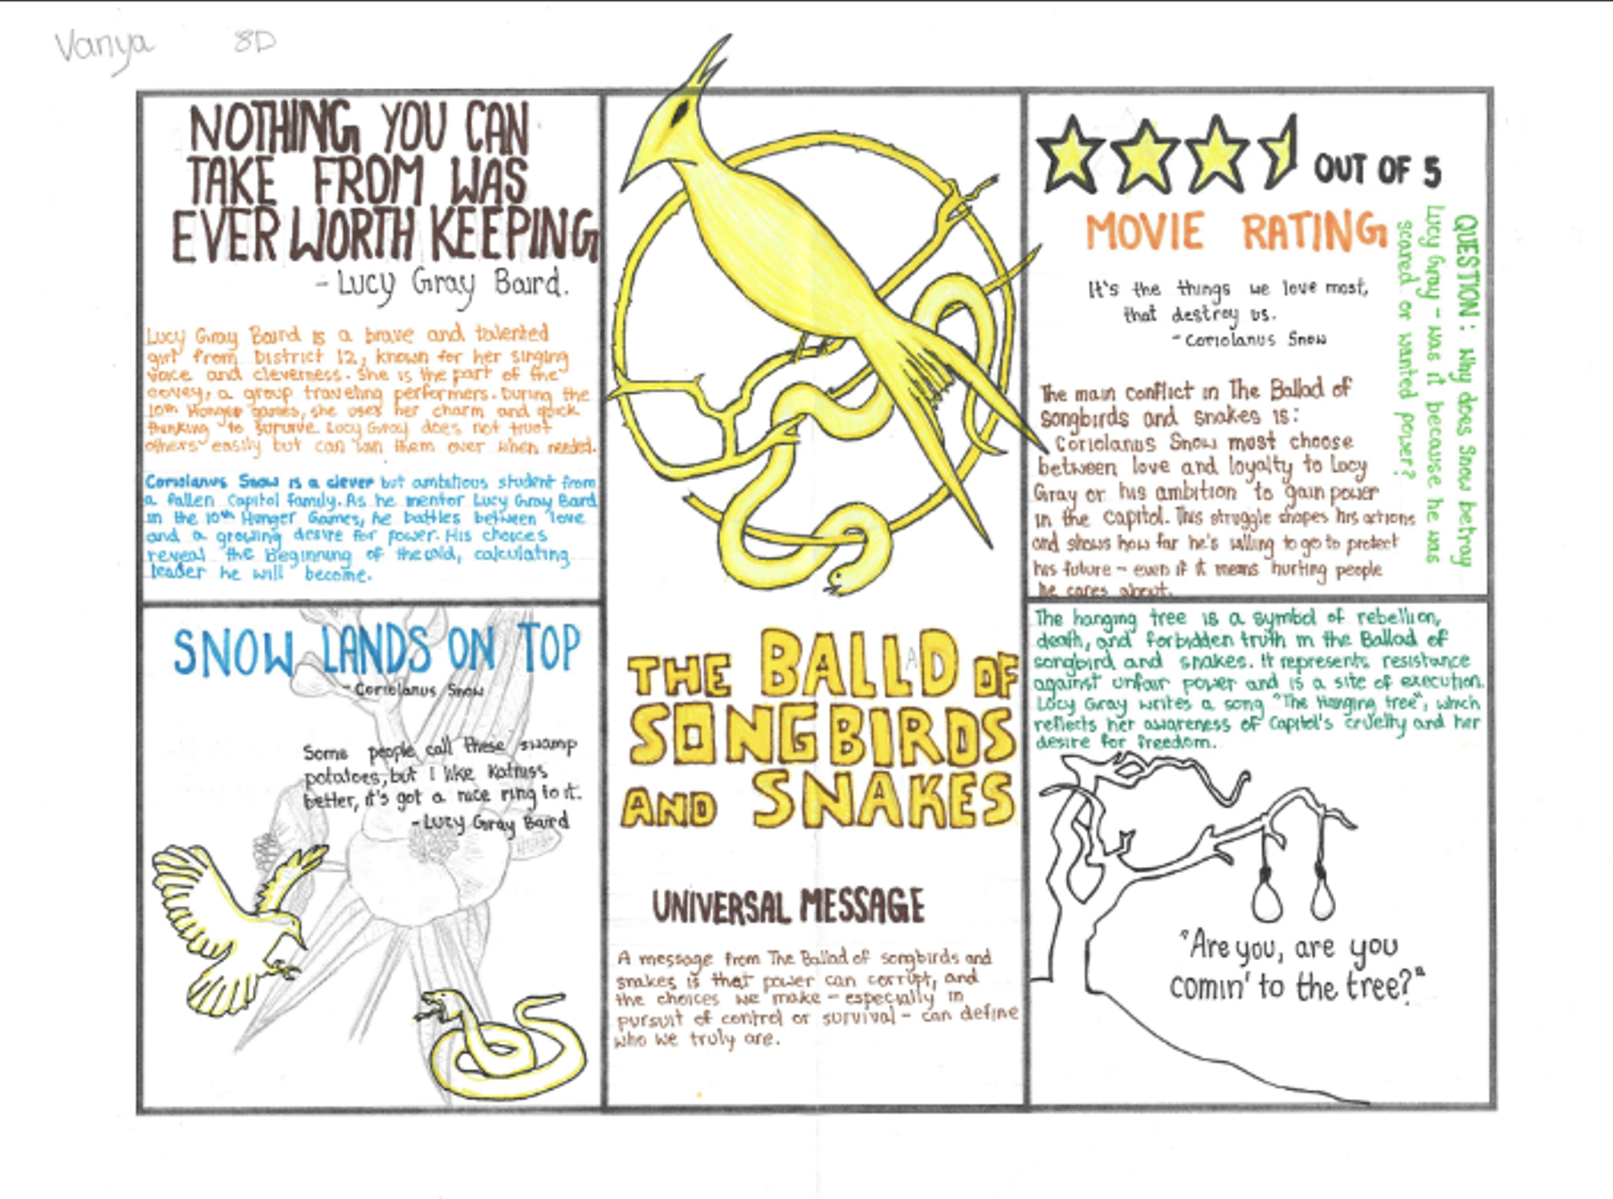 Vanya 8D
NOTHING YOU CAN
TAKE FROM WAS
EVER WORTH KEEPING
- Lucy Gray Baird.
Lucy Gray Baird is a brave and talented
girl from District 12, known for her singing
voice and cleverness. She is the part of the
covey, a group traveling performers. During the
10th Hunger Games, she uses her charm and quick
thinking to survive. Lucy Gray does not trust
others easily but can win them over when needed.
Coriolanus Snow is a clever but ambitious student from
a fallen Capitol family. As he mentor Lucy Gray Baird
in the 10th Hunger Games, he battles between love
and a growing desire for power. His choices
reveal the beginning of the cold, calculating
leader he will become.
SNOW LANDS ON TOP
- Coriolanus Snow
Some people call these swamp
potatoes, but I like Katniss
better, it's got a nice ring to it.
- Lucy Gray Baird
THE BALLAD OF
SONGBIRDS
AND SNAKES
UNIVERSAL MESSAGE
A message from The Ballad of songbirds and
snakes is that power can corrupt, and
the choices we make - especially in
pursuit of control or survival - can define
who we truly are.
OUT OF 5
MOVIE RATING
It's the things we love most,
that destroy us.
- Coriolanus Snow
The main conflict in The Ballad of
songbirds and snakes is:
Coriolanus Snow must choose
between love and loyalty to Lucy
Gray or his ambition to gain power
in the Capitol. This struggle shapes his actions
and shows how far he's willing to go to protect
his future - even if it means hurting people
he cares about.
QUESTION: Why does Snow betray
Lucy Gray - was it because he was
scared or wanted power?
The hanging tree is a symbol of rebellion,
death, and forbidden truth in the Ballad of
songbird and snakes. It represents resistance
against unfair power and is a site of execution.
Lucy Gray writes a song "The Hanging tree", which
reflects her awareness of Capitol's cruelty and her
desire for freedom.
"Are you, are you
comin' to the tree?"